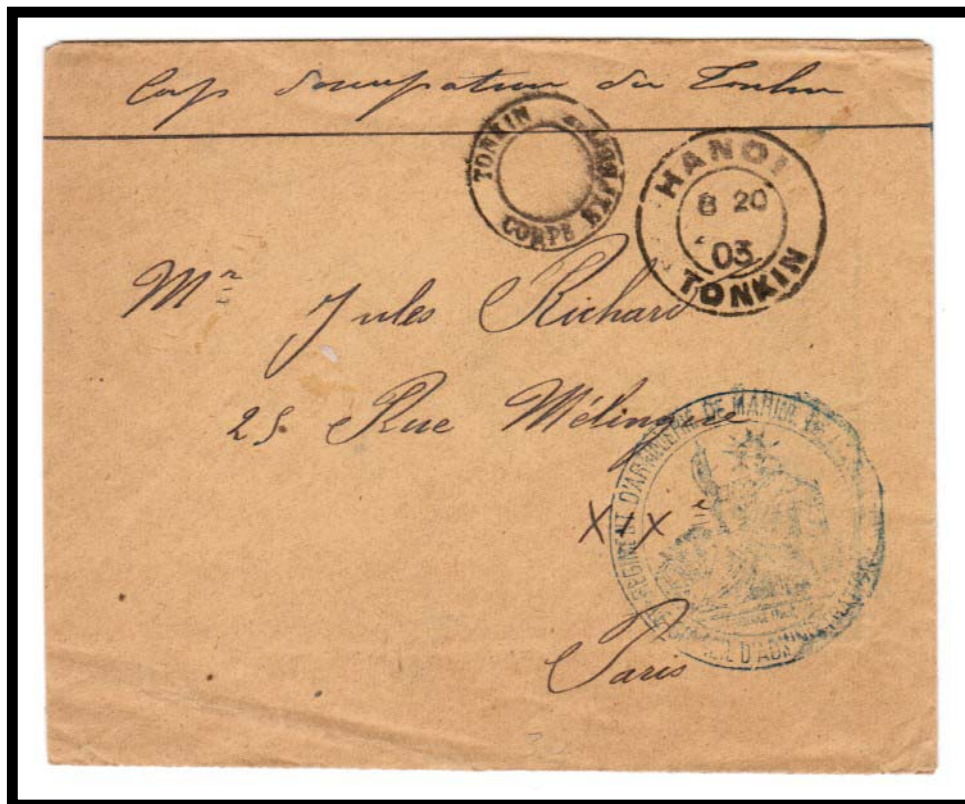 Corps d'occupation du Tonkin
TONKIN
CORPS EXP
HANOI
8 20
03
TONKIN
Mr Jules Richard
25 Rue Mélingue
RÉGIMENT D'ARTILLERIE DE MARINE
X I X
CONSEIL D'ADMINISTRATION
Paris